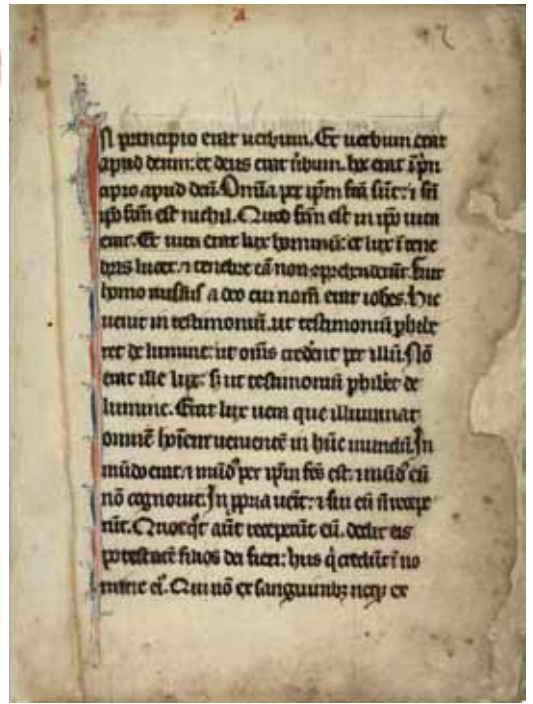 IN principio erat uerbum. Et uerbum erat
apud deum: et deus erat ũbum. hoc erat ĩ pn
cipio apud deũ. Omĩa per ip̃m fc̃a sũt: ⁊ sĩ
ip̃o fc̃m est nichil. Quod fc̃m est in ip̃o uita
erat. Et uita erat lux hominũ: et lux ĩ tene
bris lucet. ⁊ tenebre eã non cp̃rehenderũt. Fuit
homo missus a deo cui nom̃ erat ioh̃es. Hic
uenit in testimoniũ. ut testimoniũ phibe
ret de lumine: ut om̃s crederẽt per illũ. Nõ
erat ille lux: s; ut testimoniũ phiber̃ de
lumine. Erat lux uera que illuminat
omnẽ hoĩem uenientẽ in hũc mundũ. In
mũdo erat: ⁊ mũdꝰ per ip̃m fc̃s est: ⁊ mũdꝰ eũ
nõ cognouit. In ppria uẽit: ⁊ sui eũ nõ recepe
rũt. Quotq̃t aũt receperũt eũ. dedit eis
potestatẽ filios dei fieri: hiis q̃ credũt ĩ no
mine eĩ. Qui nõ ex sanguinibꝫ neqꝫ ex